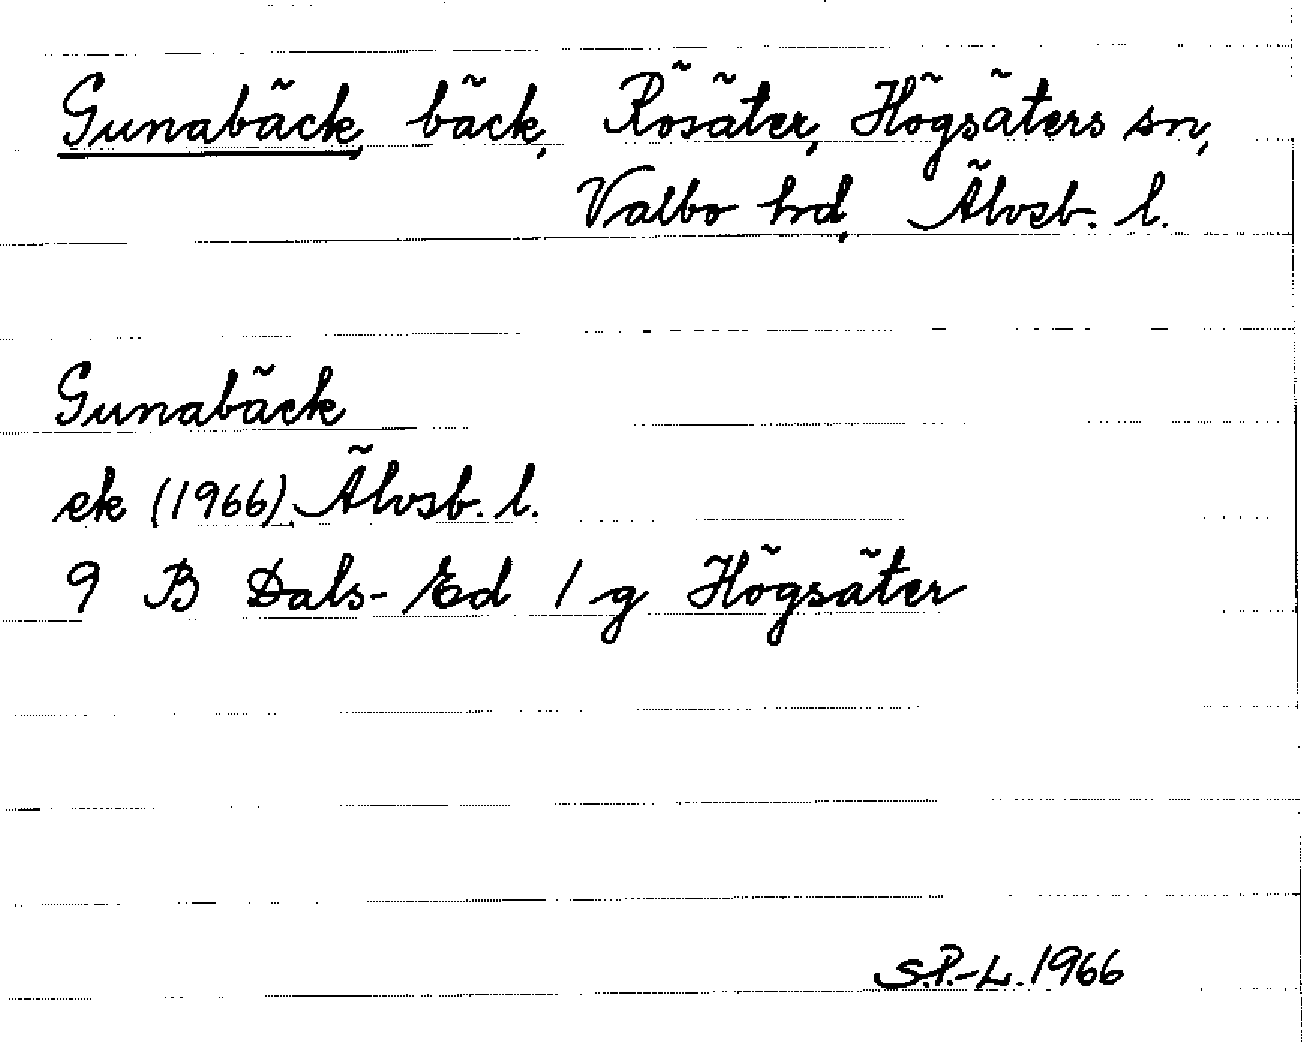 Gunabäck, bäck, Rösäter, Högsäters sn,
Valbo hd, Älvsb. l.
Gunabäck
ek (1966), Älvsb. l.
9 B Dals-Ed 1 g Högsäter
S.P.-L. 1966